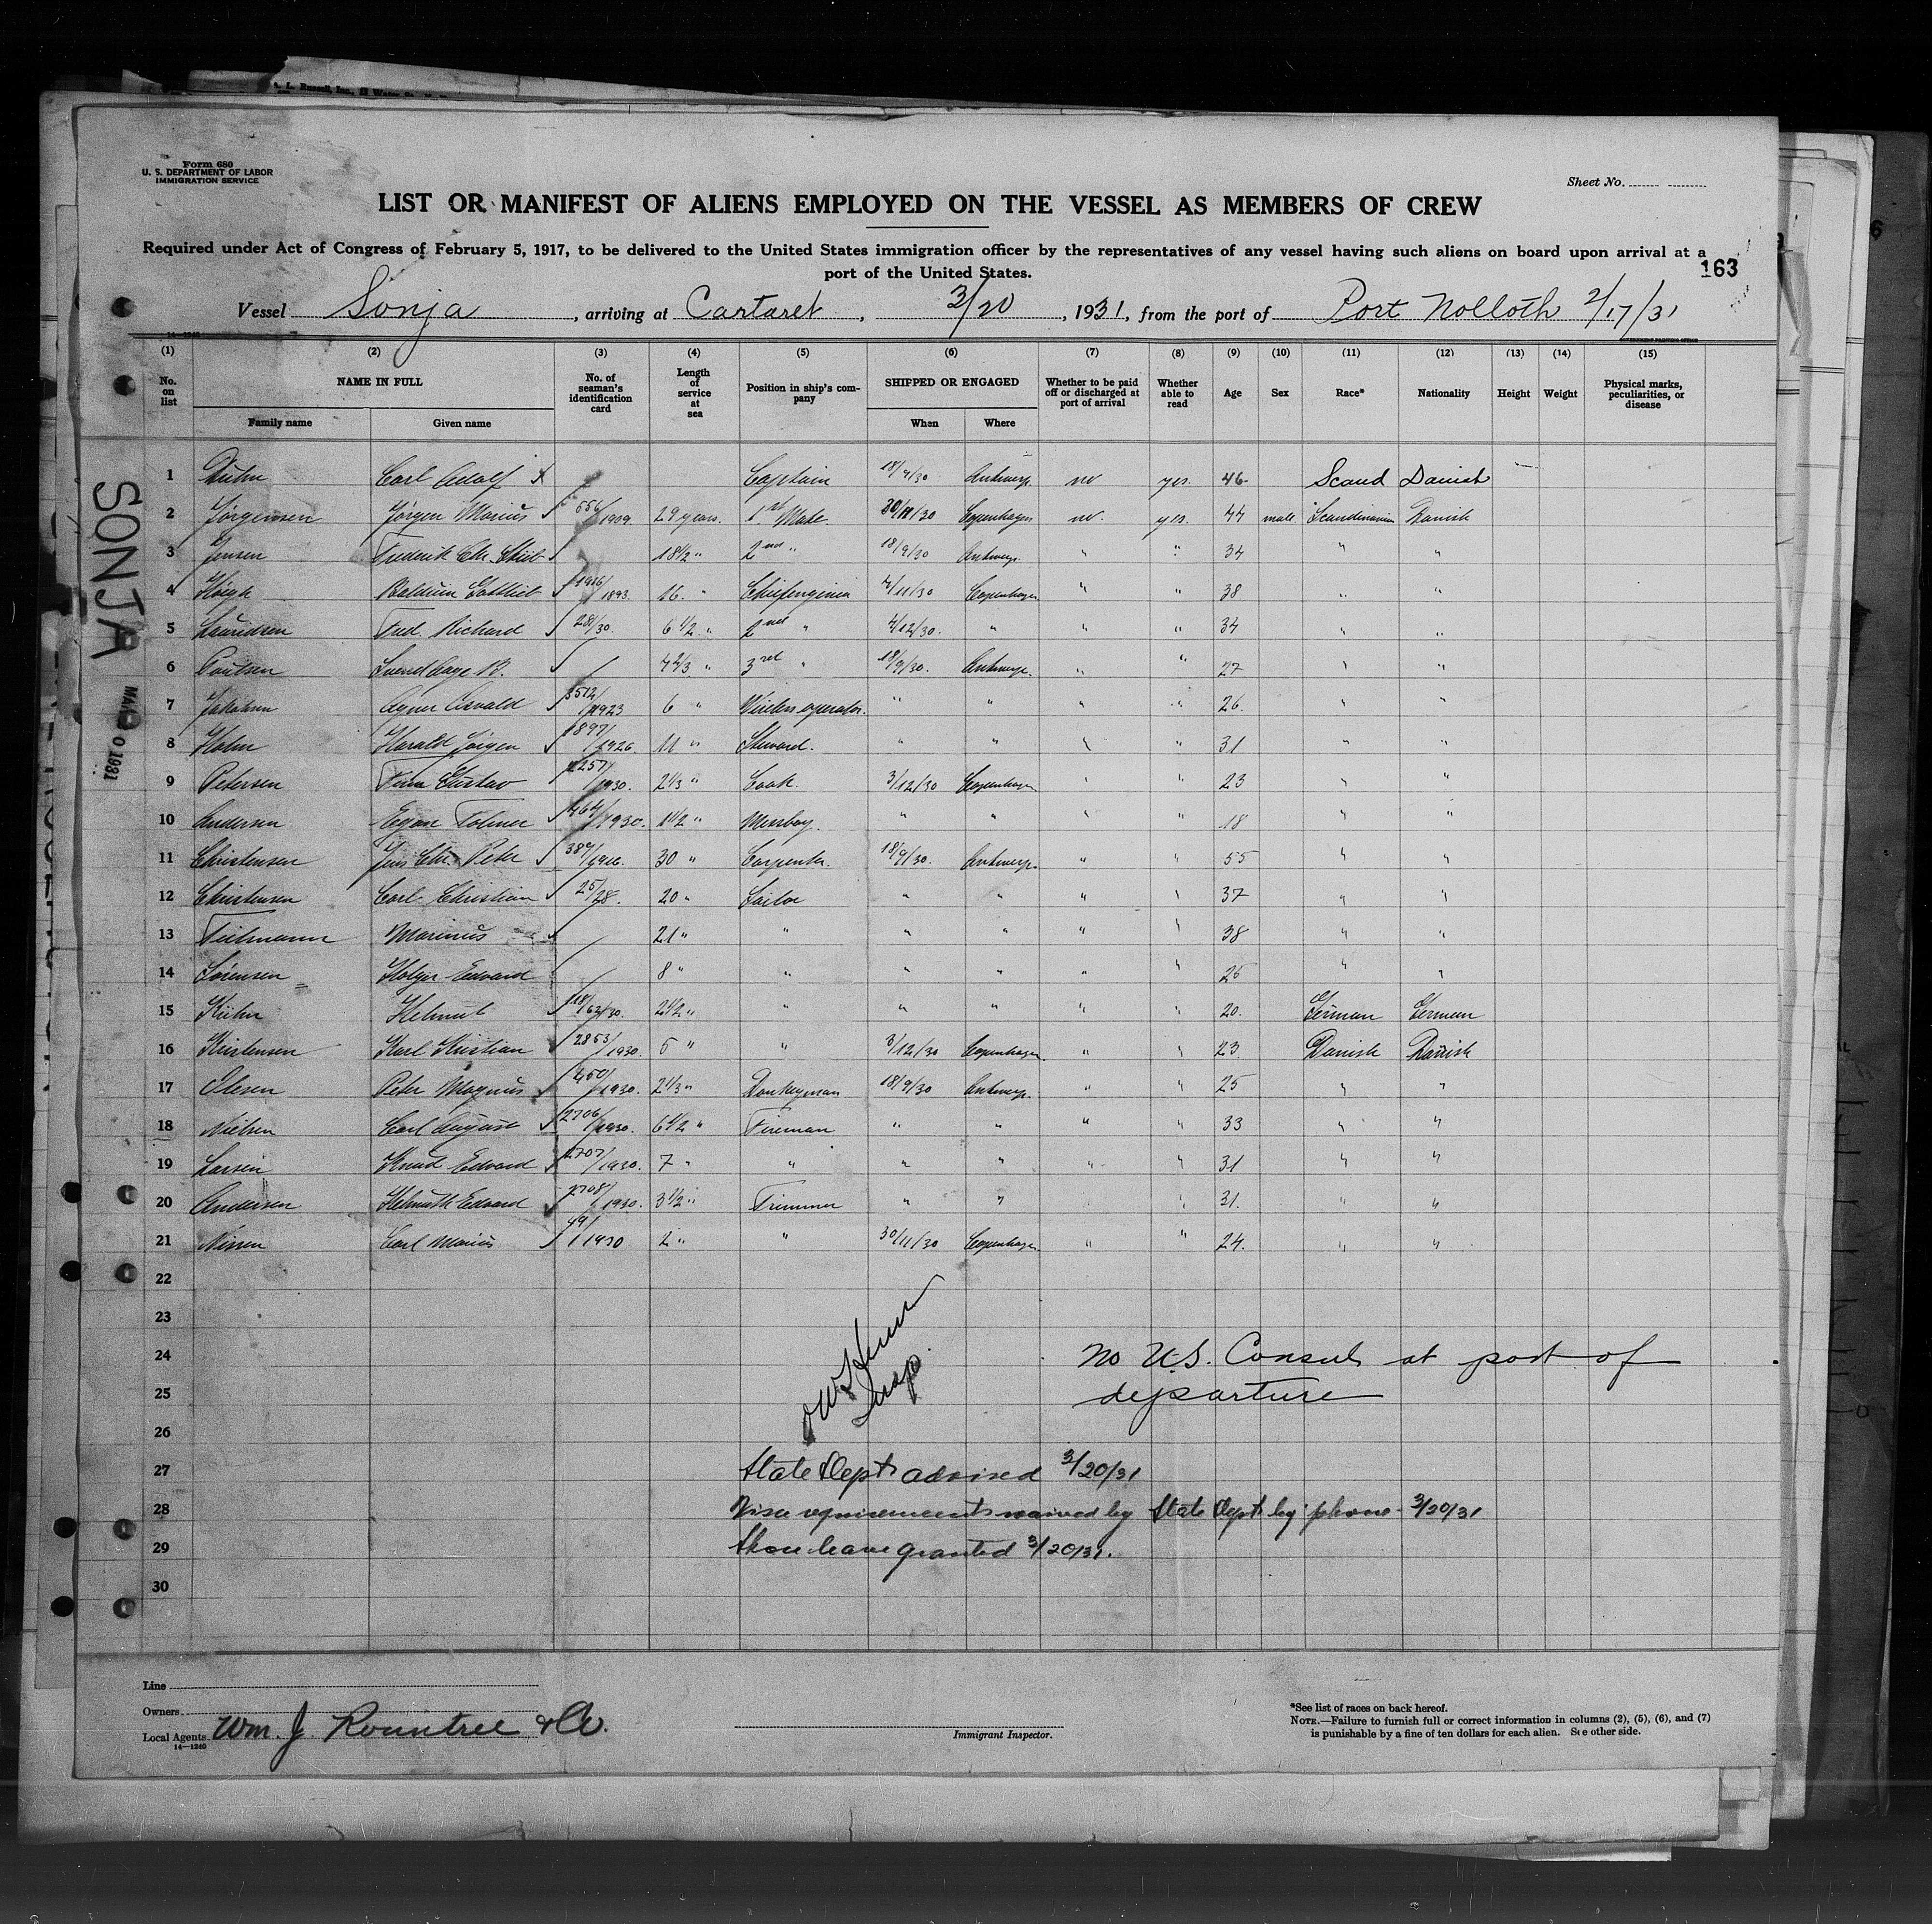 Form 680
U. S. DEPARTMENT OF LABOR
IMMIGRATION SERVICE
Sheet No.
LIST OR MANIFEST OF ALIENS EMPLOYED ON THE VESSEL AS MEMBERS OF CREW
Required under Act of Congress of February 5, 1917, to be delivered to the United States immigration officer by the representatives of any vessel having such aliens on board upon arrival at a
port of the United States.
163
Vessel Sonja, arriving at Cartaret, 3/20, 1931, from the port of Port Nolloth 2/17/31
(1) (2) (3) (4) (5) (6) (7) (8) (9) (10) (11) (12) (13) (14) (15)
No. on list NAME IN FULL No. of seaman's identification card Length of service at sea Position in ship's company SHIPPED OR ENGAGED Whether to be paid off or discharged at port of arrival Whether able to read Age Sex Race* Nationality Height Weight Physical marks, peculiarities, or disease
Family name Given name When Where
SONJA
1 Carl Adolf Captain 18/9/30 Antwerp no yes 46 Scand Danish
2 Jørgensen Jørgen Marius 556/1909 29 years 1st Mate 30/11/30 Copenhagen no. yes. 44 male Scandinavian Danish
3 Jensen Frederik Chr. 18 1/2 " 2nd " 18/9/30 Antwerp " " 34 " "
4 Høigh Balduin Gottlieb 1916/1893 16 " 4/11/30 Copenhagen " " 38 " "
5 Lauridsen Fred. Richard 28/30 6 1/2 " 2nd " 4/12/30 " " " 34 " "
6 Poulsen Svend Aage B. 4 2/3 " 3rd " 18/9/30 Antwerp " " 27 " "
7 Jakobsen Agner Osvald 3512/1923 6 " Wireless operator " " " " 26 " "
8 Holm Harald Jörgen 1897/1926 11 " Steward. " " " " 31 " "
9 Petersen Finn Gustav 1257/1930 2 1/3 " Cook. 3/12/30 Copenhagen " " 23 " "
10 Andersen Egon Folmer 464/1930 1 1/2 " Messboy. " " " " 18 " "
11 Christensen Jens Chr. Peter 389/1916 30 " Carpenter 18/9/30 Antwerp " " 55 " "
12 Christensen Carl Christian 25/28 20 " Sailor " " " " 37 " "
13 Marinus 21 " " " " " " 38 " "
14 Sørensen Holger Edvard 8 " " " " " " 25 " "
15 Kühn Helmut 118/62/30 2 1/2 " " " " " " 20 German German
16 Kristensen Karl Kristian 2853/1930 5 " " 3/12/30 Copenhagen " " 23 Danish Danish
17 Olesen Peter Magnus 450/1930 2 1/3 " Donkeyman 18/9/30 Antwerp " " 25 " "
18 Nielsen Carl August 2706/1930 6 1/2 " Fireman " " " " 33 " "
19 Larsen Knud Edvard 2707/1930 7 " " " " " " 31 " "
20 Andersen Helmuth Edvard 2708/1930 3 1/2 " Trimmer " " " " 31. " "
21 Nissen Carl Marius 49/1930 2 " " 30/11/30 Copenhagen " " 24 " "
22
23
24 No U.S. Consul at port of
25 departure
26
27 State Dept advised 3/20/31
28 Visa requirements waived by State Dept by phone 3/20/31
29 Shore leave granted 3/20/31.
30
Insp
Line
Owners
Local Agents Wm. J. Rountree & Co.
14—1240
Immigrant Inspector.
*See list of races on back hereof.
NOTE.—Failure to furnish full or correct information in columns (2), (5), (6), and (7)
is punishable by a fine of ten dollars for each alien. See other side.